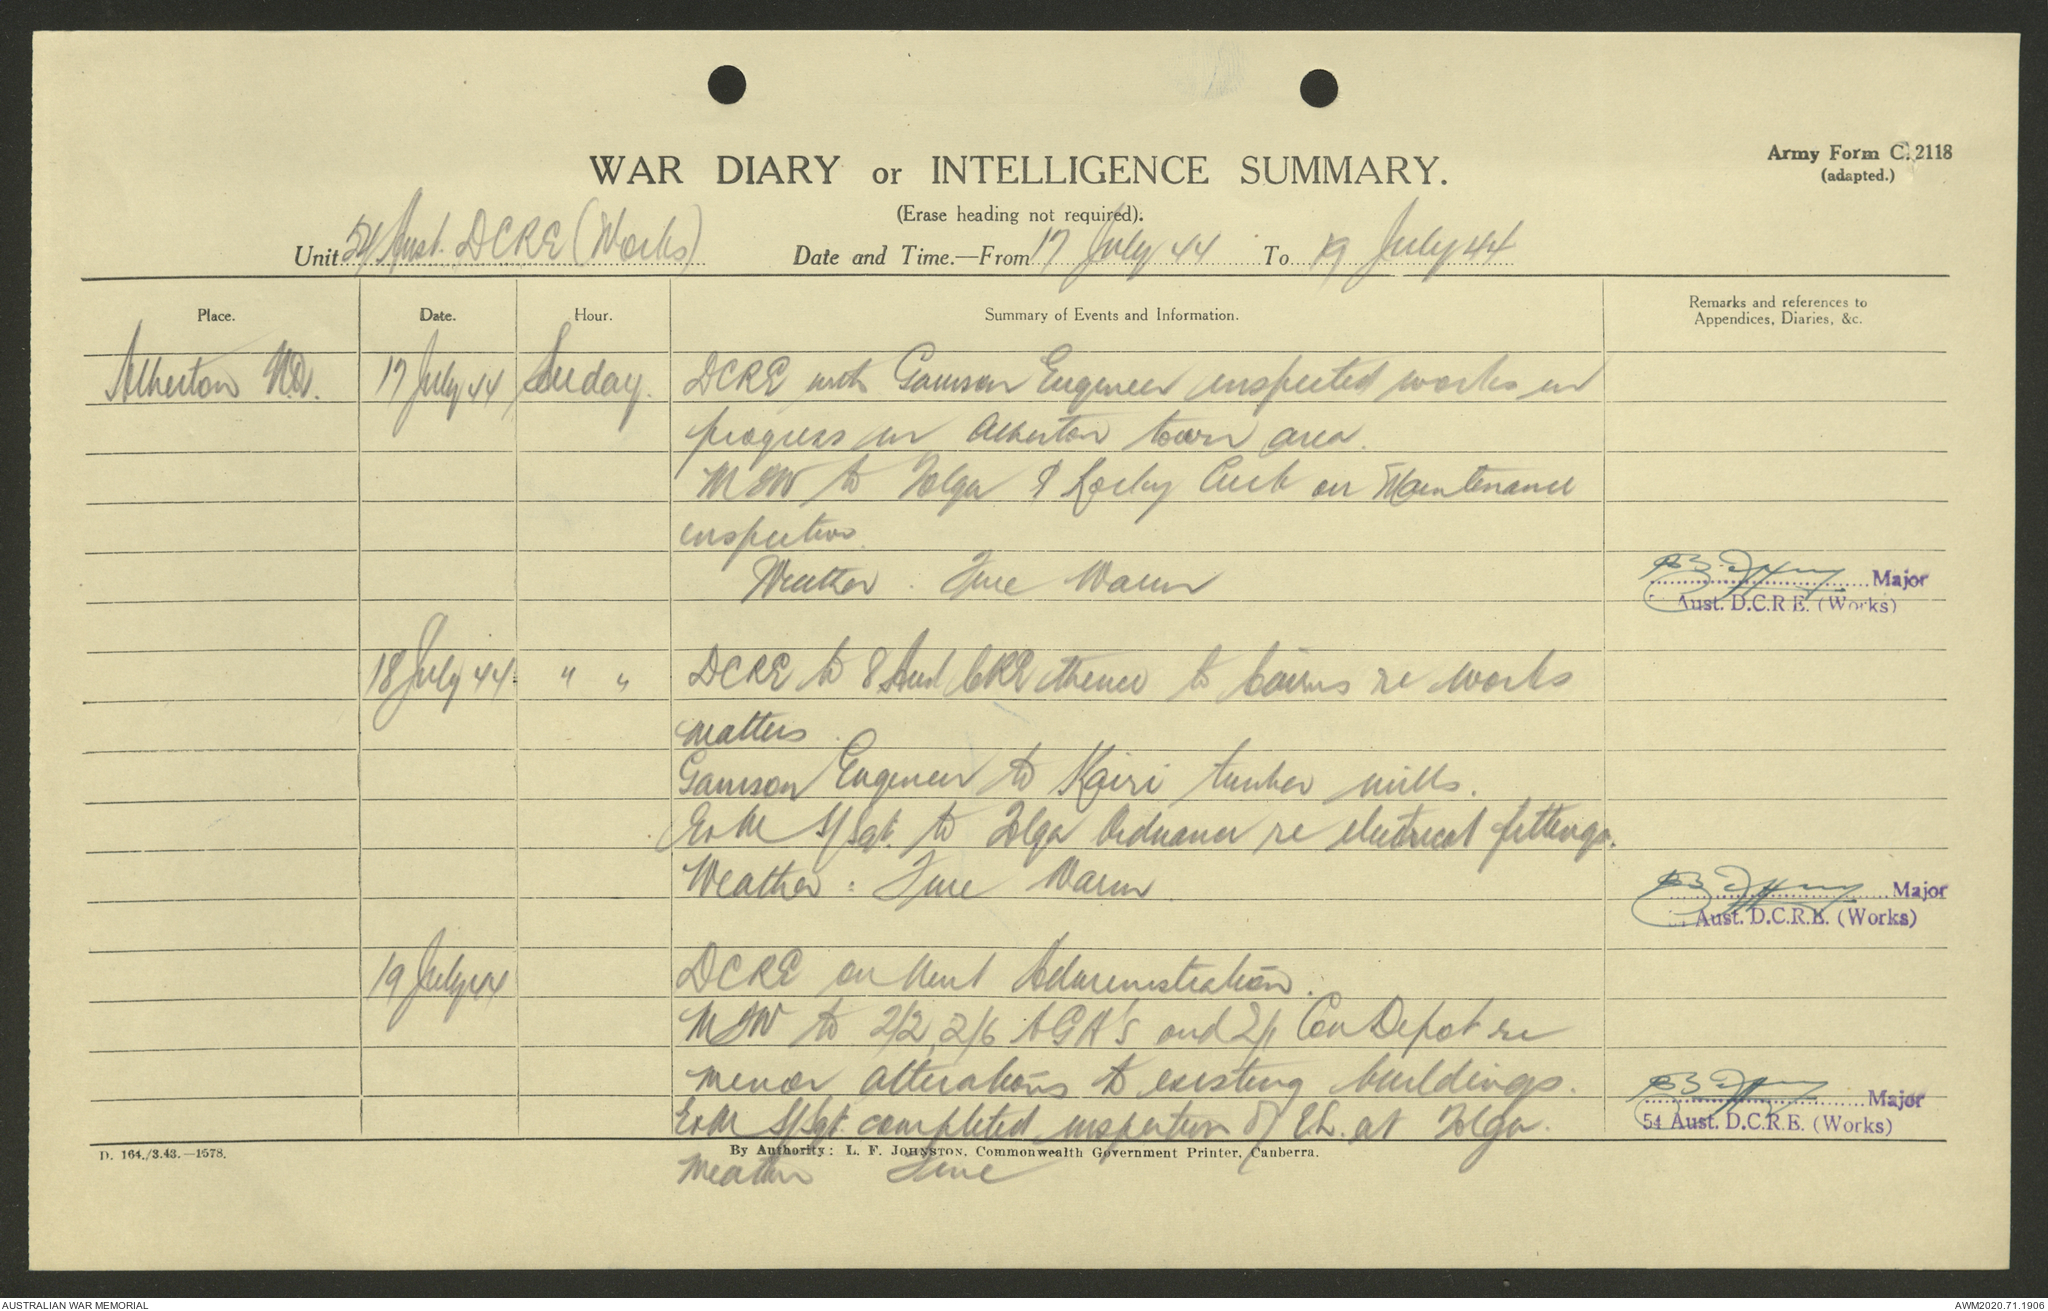 WAR DIARY or INTELLIGENCE SUMMARY.
Army Form C. 2118
(adapted.)
(Erase heading not required).
Unit 54 Aust. DCRE (Works) Date and Time.—From 17 July 44 To 19 July 44
Place. Date. Hour. Summary of Events and Information. Remarks and references to
Appendices, Diaries, &c.
Atherton N.Q. 17 July 44 DCRE with Garrison Engineer inspected works in
progress in Atherton town area.
to Tolga & Rocky Creek on Maintenance
inspection
Weather. Fine Warm
Major
Aust. D.C.R.E. (Works)
18 July 44 " " DCRE to 8 Aust CRE thence to Cairns re works
matters.
Garrison Engineer to Kairi timber mills.
E & M S/Sgt. to Tolga Ordnance re electrical fittings.
Weather: Fine Warm
Major
Aust. D.C.R.E. (Works)
19 July 44 DCRE on Unit Administration.
to 2/2, 2/6 AGH's and 2/1 Con Depot re
minor alterations to existing buildings.
E & M S/Sgt. completed inspection of E.L. at Tolga.
Weather Fine
Major
54 Aust. D.C.R.E. (Works)
D. 164./3.43.—1578. By Authority: L. F. JOHNSTON, Commonwealth Government Printer, Canberra.
AUSTRALIAN WAR MEMORIAL AWM2020.71.1906